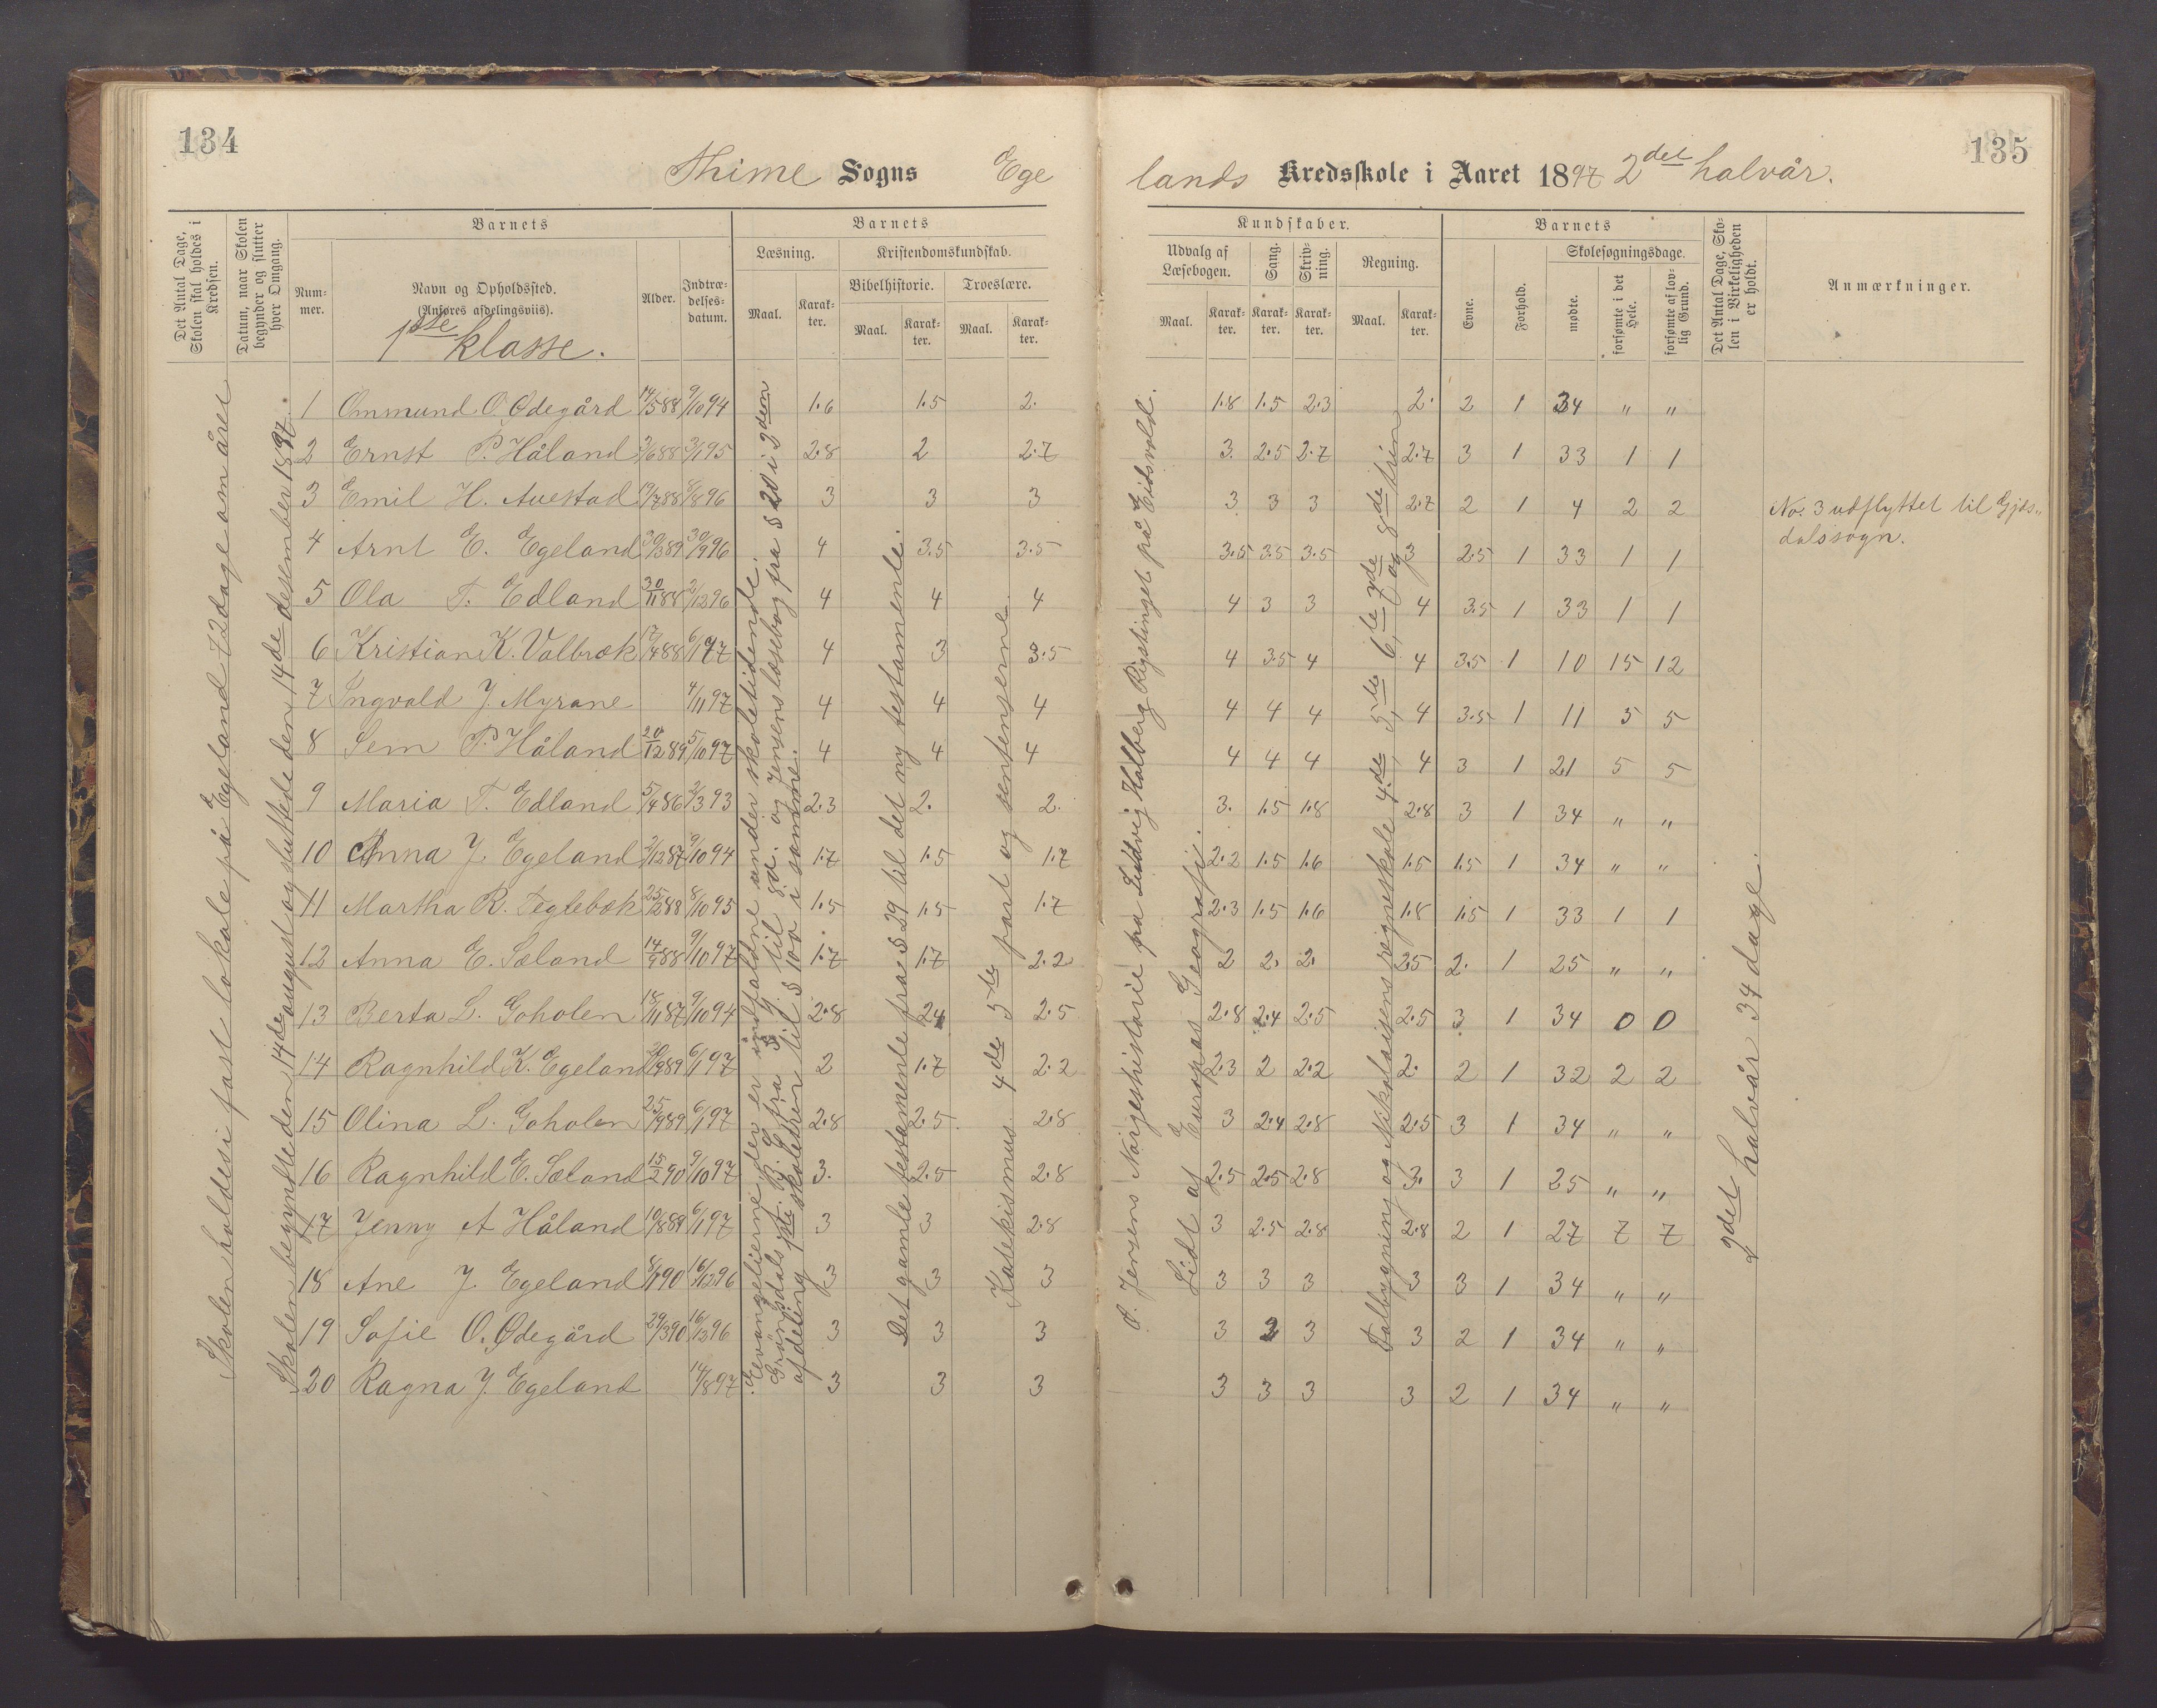 134
Thime Sogns Ege
Det Antal Dage, Skolen skal holdes i Kredsen.
Datum, naar Skolen begynder og slutter hver Omgang.
Barnets
Num-mer.
Navn og Opholdssted.
(Anføres afdelingsviis).
1ste klasse.
Alder.
Indtræ-delses-datum.
Barnets
Læsning.
Maal. Karak-ter.
Kristendomskundskab.
Bibelhistorie. Troeslære.
Maal. Karak-ter. Maal. Karak-ter.
Skolen holdes i fast lokale på Egeland 72 dage om året
Skolen begyndte den 14de august og sluttede den 14de desember 1897.
1 Ommund O. Ødegård 14/5 88 9/10 94 1.6 1.5 2.
2 Ernst P. Håland 3/6 88 3/1 95 2.8 2 2.7
3 Emil H. Auestad 19/7 88 8/8 96 3 3 3
4 Arnt E. Egeland 30/3 89 30/9 96 4 3.5 3.5
5 Ola T. Edland 30/11 88 2/12 96 4 4 4
6 Kristian K. Valbræk 17/4 88 6/1 97 4 3 3.5
7 Ingvald J. Myrane 4/11 97 4 4 4
8 Sem P. Håland 20/12 89 5/10 97 4 4 4
9 Maria T. Edland 5/4 86 2/3 93 2.3 2. 2.
10 Anna J. Egeland 2/12 87 9/10 94 1.7 1.5 1.7
11 Martha R. Teglebæk 25/12 88 8/10 95 1.5 1.5 1.7
12 Anna E. Sæland 14/9 88 9/10 97 1.7 1.7 2.2
13 Berta L. Goholen 18/11 87 9/10 94 2.8 2.4 2.5
14 Ragnhild K. Egeland 20/9 89 6/1 97 2 1.7 2.2
15 Olina L. Goholen 25/9 89 6/1 97 2.8 2.5 2.8
16 Ragnhild E. Sæland 15/2 90 9/10 97 3. 2.5 2.8
17 Jenny A Håland 10/8 89 6/1 97 3 3 2.8
18 Ane J. Egeland 8/1 90 16/12 96 3 3 3
19 Sofie O. Ødegård 29/3 90 16/12 96 3 3 3
20 Ragna J. Egeland 14/8 97 3 3 3
Eevangelierne der er indfaldne under skoletidende.
Grönsdals 1ste B. S. fra § 9. til 82. og Jensens læsebog fra § 20 i 3den
afdeling 1ste skoletren til § 100 i samme.
Det gamle testamente fra § 29 til det ny testamente.
Katekismus 4de 5te part og sentenserne
135
lands Kredsskole i Aaret 1897 2det halvår.
Kundskaber.
Udvalg af Læsebogen. Sang. Skriv-ning. Regning.
Maal. Karak-ter. Karak-ter. Karak-ter. Maal. Karak-ter.
Barnets
Evne. Forhold.
Skolesøgningsdage.
mødte. forsømte i det Hele. forsømte af lov-lig Grund.
Det Antal Dage, Sko-len i Virkeligheden er holdt.
Anmærkninger.
1.8 1.5 2.3 2. 2 1 34 " "
3. 2.5 2.7 2.7 3 1 33 1 1
3 3 3 2.7 2 1 4 2 2
No. 3 udflyttet til Gjæs„
dalssogn.
3.5 3.5 3.5 3 2.5 1 33 1 1
4 3 3 4 3.5 1 33 1 1
4 3.5 4 4 3.5 1 10 15 12
4 4 4 4 3.5 1 11 5 5
4 4 4 4 3 1 21 5 5
3. 1.5 1.8 2.8 3 1 34 " "
2.2 1.5 1.6 1.5 1.5 1 34 " "
2.3 1.5 1.6 1.8 1.5 1 33 1 1
2 2. 2. 2.5 2. 1 25 " "
2.8 2.4 2.5 2.5 3 1 34 0 0
2.3 2 2.2 2. 2 1 32 2 2
3 2.4 2.8 2.5 3 1 34 " "
2.5 2.5 2.8 3. 3 1 25 " "
3 2.5 2.8 2.8 2 1 27 7 7
3 3 3 3 3 1 34 " "
3 3 3 3 2 1 34 " "
3 3 3 3 2 1 34 " "
O. Jensens Norgeshistorie fra Ludvig Holberg Rigstinget på Eidsvold.
Lidt af Europas Geografi.
Talbygning og Nikolaisens regneskole 4de 5te 6te 7de og 8de trin
2det halvår 34 dage.